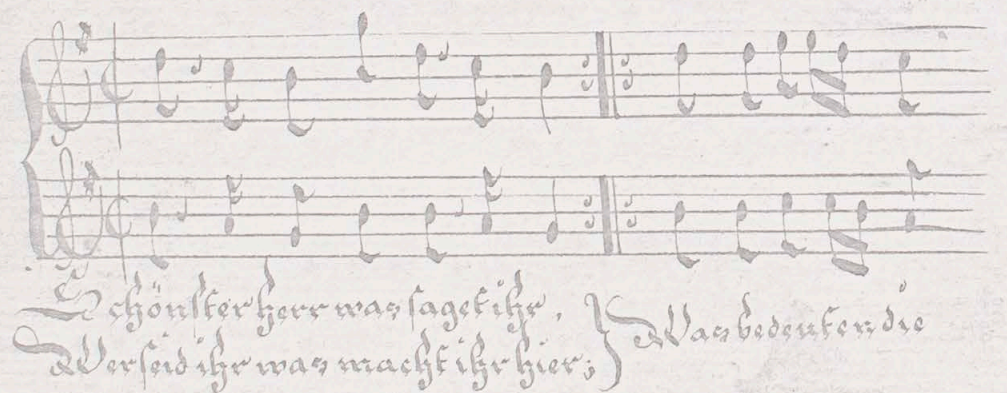 Schönster herr was saget ihr,
Wer seid ihr was macht ihr hier;
Was bedeuten die